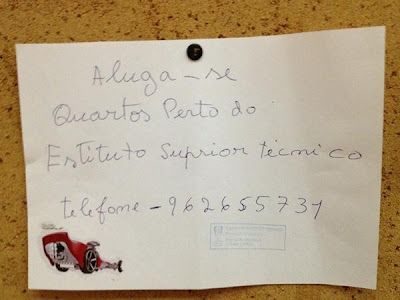 Aluga-se
Quartos Perto do
Estituto Suprior técnico
telefone - 962655731